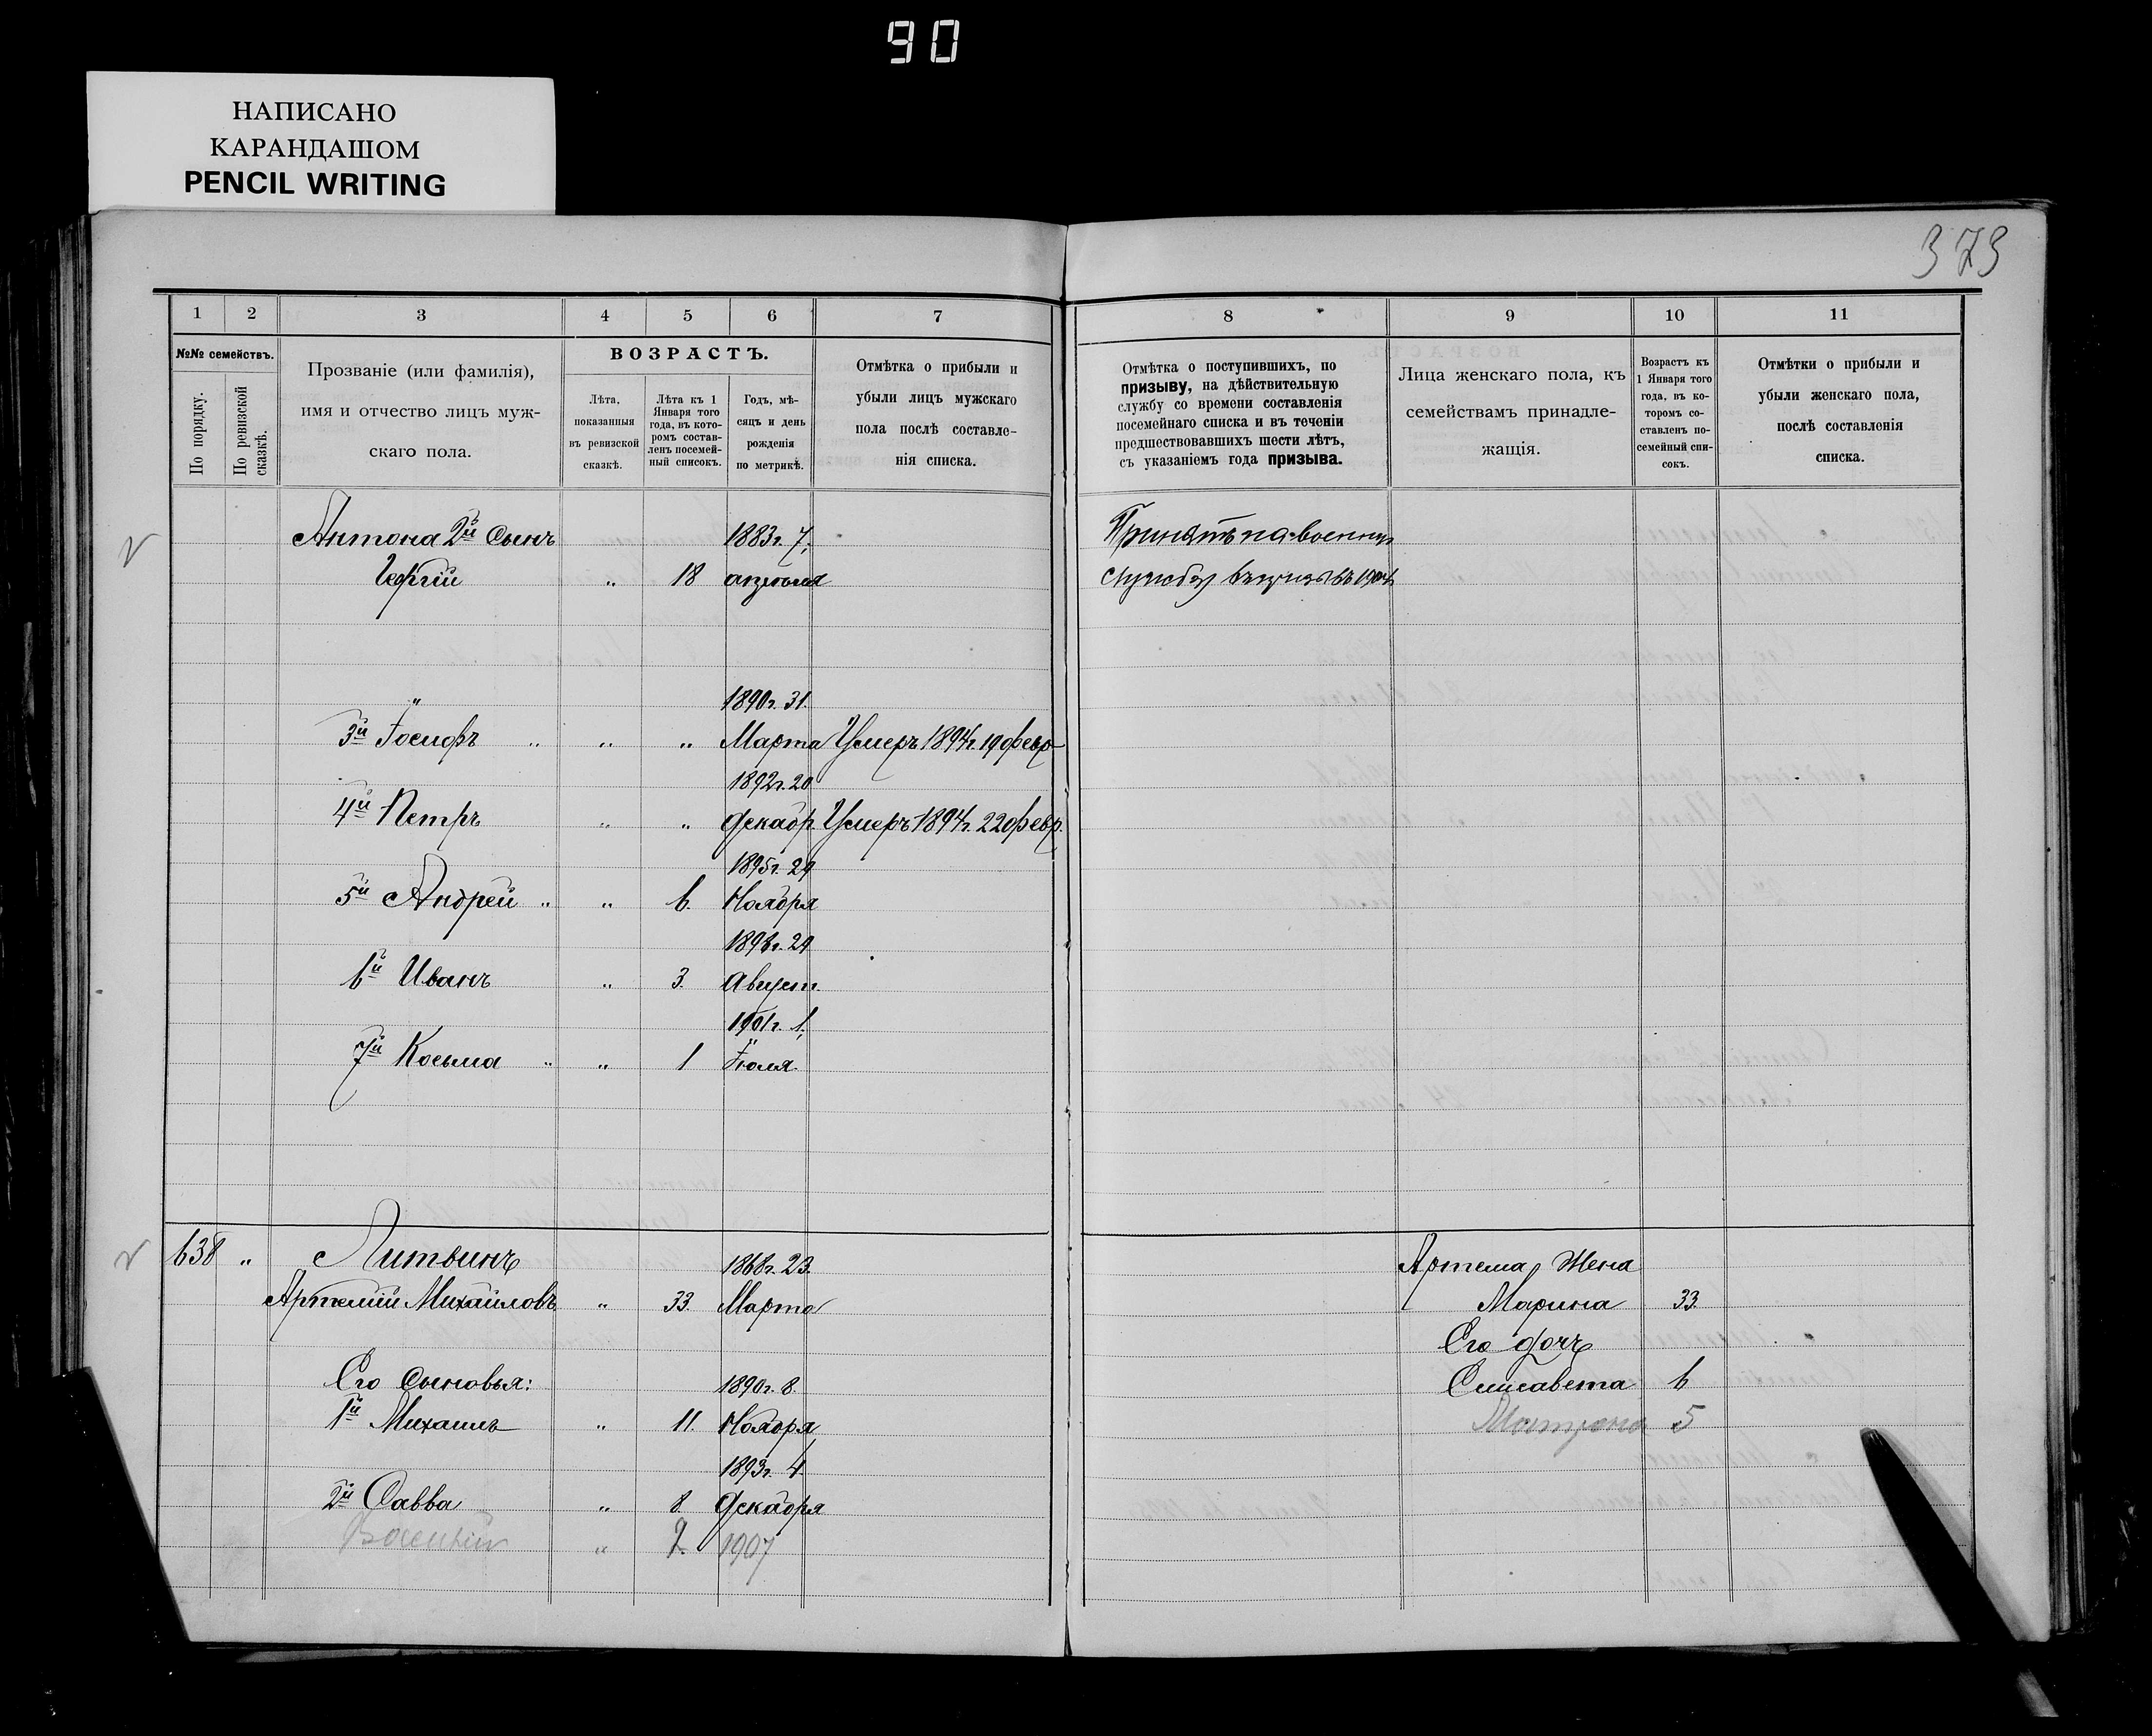 90
НАПИСАНО
КАРАНДАШОМ
PENCIL WRITING
373
1 2 3 4 5 6 7 8 9 10 11
№№ семействъ.
По порядку.
По ревизской сказкѣ.
Прозваніе (или фамилія),
имя и отчество лицъ муж-
скаго пола.
ВОЗРАСТЪ.
Лѣта,
показанныя
въ ревизской
сказкѣ.
Лѣта къ 1
Января того
года, въ кото-
ромъ состав-
ленъ посемей-
ный списокъ.
Годъ, мѣ-
сяцъ и день
рожденія
по метрикѣ.
Отмѣтка о прибыли и
убыли лицъ мужскаго
пола послѣ составле-
нія списка.
Отмѣтка о поступившихъ, по
призыву, на дѣйствительную
службу со времени составленія
посемейнаго списка и въ теченіи
предшествовавшихъ шести лѣтъ,
съ указаніемъ года призыва.
Лица женскаго пола, къ
семействамъ принадле-
жащія.
Возрастъ къ
1 Января того
года, въ ко-
торомъ со-
ставленъ по-
семейный спи-
сокъ.
Отмѣтки о прибыли и
убыли женскаго пола,
послѣ составленія
списка.
Антона 2й Сынъ 1883г. 7. Принятъ на военную
Георгій " 18 апрѣля службу въ призывъ
1890г. 31.
3й Іосифъ " " " Марта Умеръ 1894г. 19 февр.
1892г. 20
4й Петръ " " Декабр. Умеръ 1894г. 22 февр.
1895г. 29
5й Андрей " " 6. Ноября
1898г. 29
6й Иванъ " 3. Август.
1901г. 1.
7й Косьма " " 1 Іюля
638 " Литвинъ 1868г. 23. Артема Жена
Артемій Михайловъ " 33. Марта Марина 33.
Его дочь
Его Сыновья: 1890г. 8. Елисавета 6
1й Михаилъ " 11. Ноября Матрона 5
1893г. 4.
2й Савва " 8. Декабря
" 2. 1907